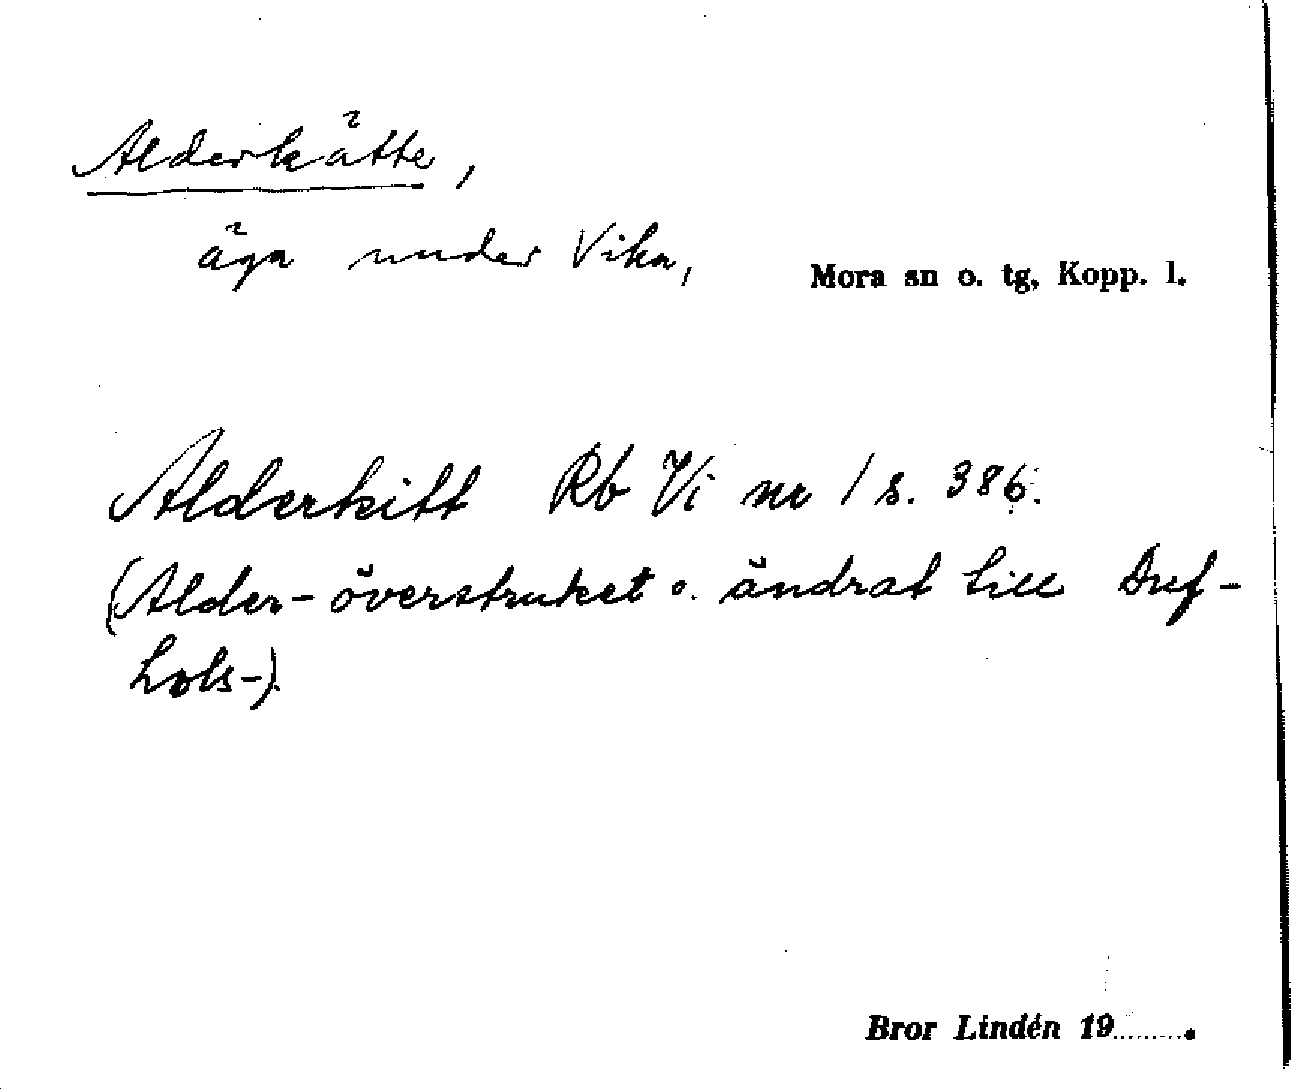 Alderkätte,
äga under Vika,
Mora sn o. tg, Kopp. l.
Alderkitt Rb Vi nr 1 s. 386.
(Alder- överstruket o. ändrat till Duf-
hols-).
Bror Lindén 19.........